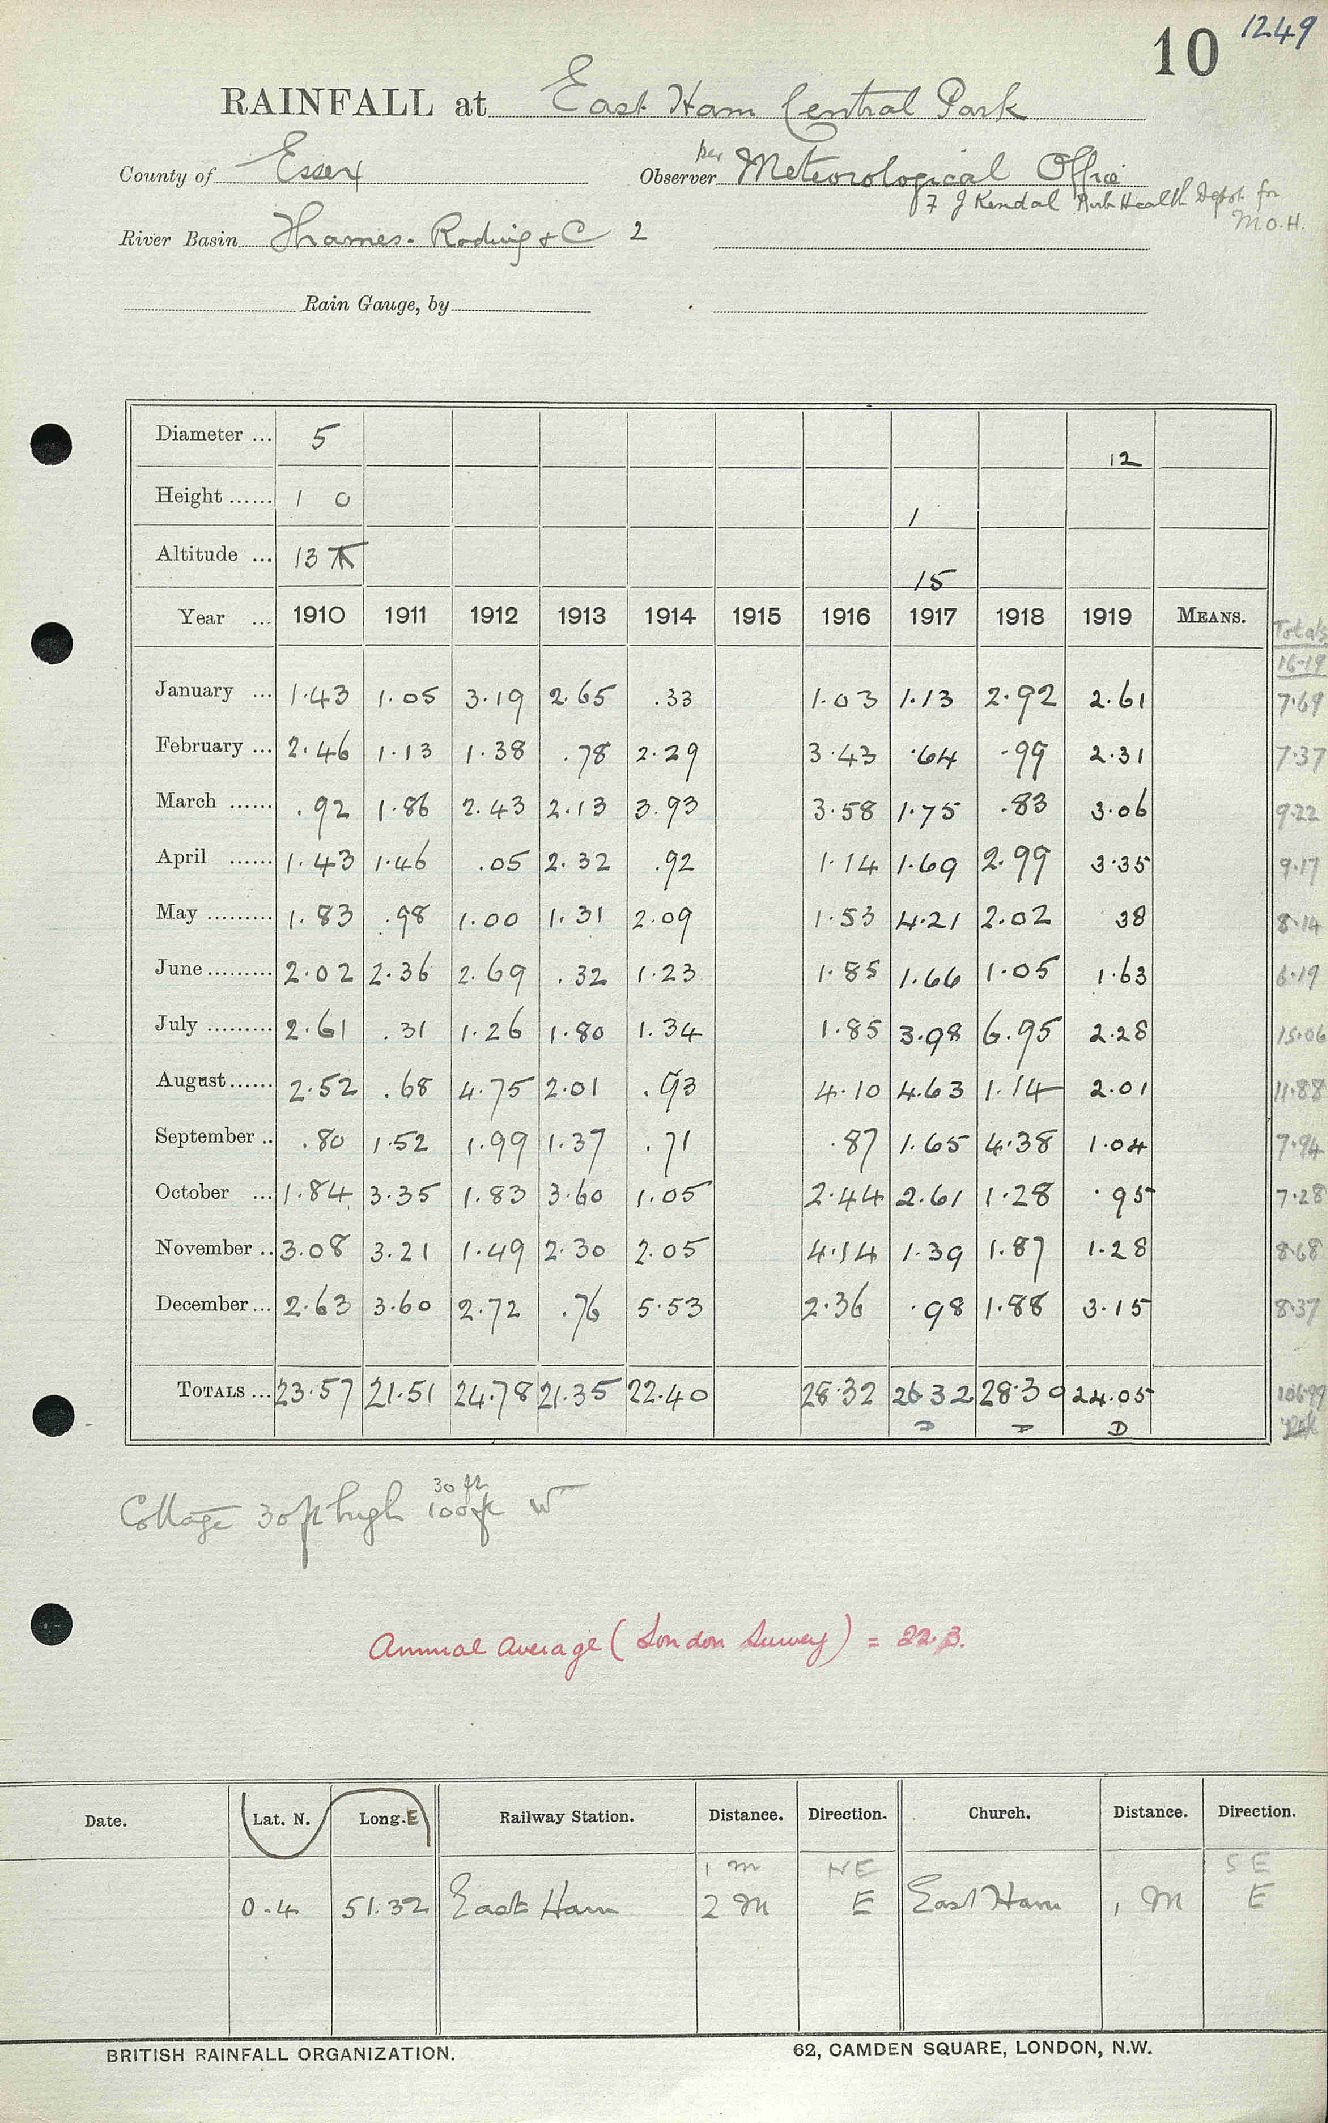 10 1249
RAINFALL at East Ham Central Park
County of Essex Observer per Meteorological Office
F J Kendal Pub. Health Depot. for
M.O.H.
River Basin Thames. Roding & C 2
Rain Gauge, by
Diameter ... 5 12
Height ...... 1 0 1
Altitude ... 13 15
Year ... 1910 1911 1912 1913 1914 1915 1916 1917 1918 1919 MEANS. Totals
16-19
January ... 1.43 1.05 3.19 2.65 .33 1.03 1.13 2.92 2.61 7.69
February ... 2.46 1.13 1.38 .78 2.29 3.43 .64 .99 2.31 7.37
March ...... .92 1.86 2.43 2.13 3.93 3.58 1.75 .83 3.06 9.22
April ...... 1.43 1.46 .05 2.32 .92 1.14 1.69 2.99 3.35 9.17
May ......... 1.83 .98 1.00 1.31 2.09 1.53 4.21 2.02 38 8.14
June ......... 2.02 2.36 2.69 .32 1.23 1.85 1.66 1.05 1.63 6.19
July ......... 2.61 .31 1.26 1.80 1.34 1.85 3.98 6.95 2.28 15.06
August ...... 2.52 .68 4.75 2.01 .93 4.10 4.63 1.14 2.01 11.88
September .. .80 1.52 1.99 1.37 .71 .87 1.65 4.38 1.04 7.94
October ... 1.84 3.35 1.83 3.60 1.05 2.44 2.61 1.28 .95 7.28
November .. 3.08 3.21 1.49 2.30 2.05 4.14 1.39 1.87 1.28 8.68
December ... 2.63 3.60 2.72 .76 5.53 2.36 .98 1.88 3.15 8.37
TOTALS ... 23.57 21.51 24.78 21.35 22.40 28.32 26.32 28.30 24.05 106.99
D D D
Cottage 30 ft high 30 ft 100 ft W
Annual average (London Survey) = 22.3.
Date. Lat. N. Long. E Railway Station. Distance. Direction. Church. Distance. Direction.
1 m NE SE
0.4 51.32 East Ham 2 M E East Ham 1 M E
BRITISH RAINFALL ORGANIZATION. 62, CAMDEN SQUARE, LONDON, N.W.